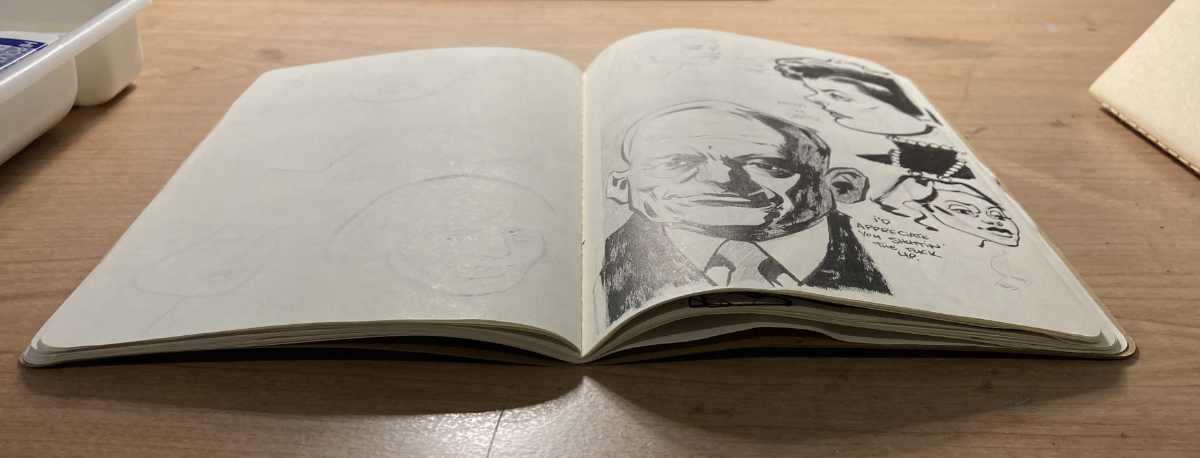 I'D
APPRECIATE
YOU SHUTTIN'
THE FUCK
UP.